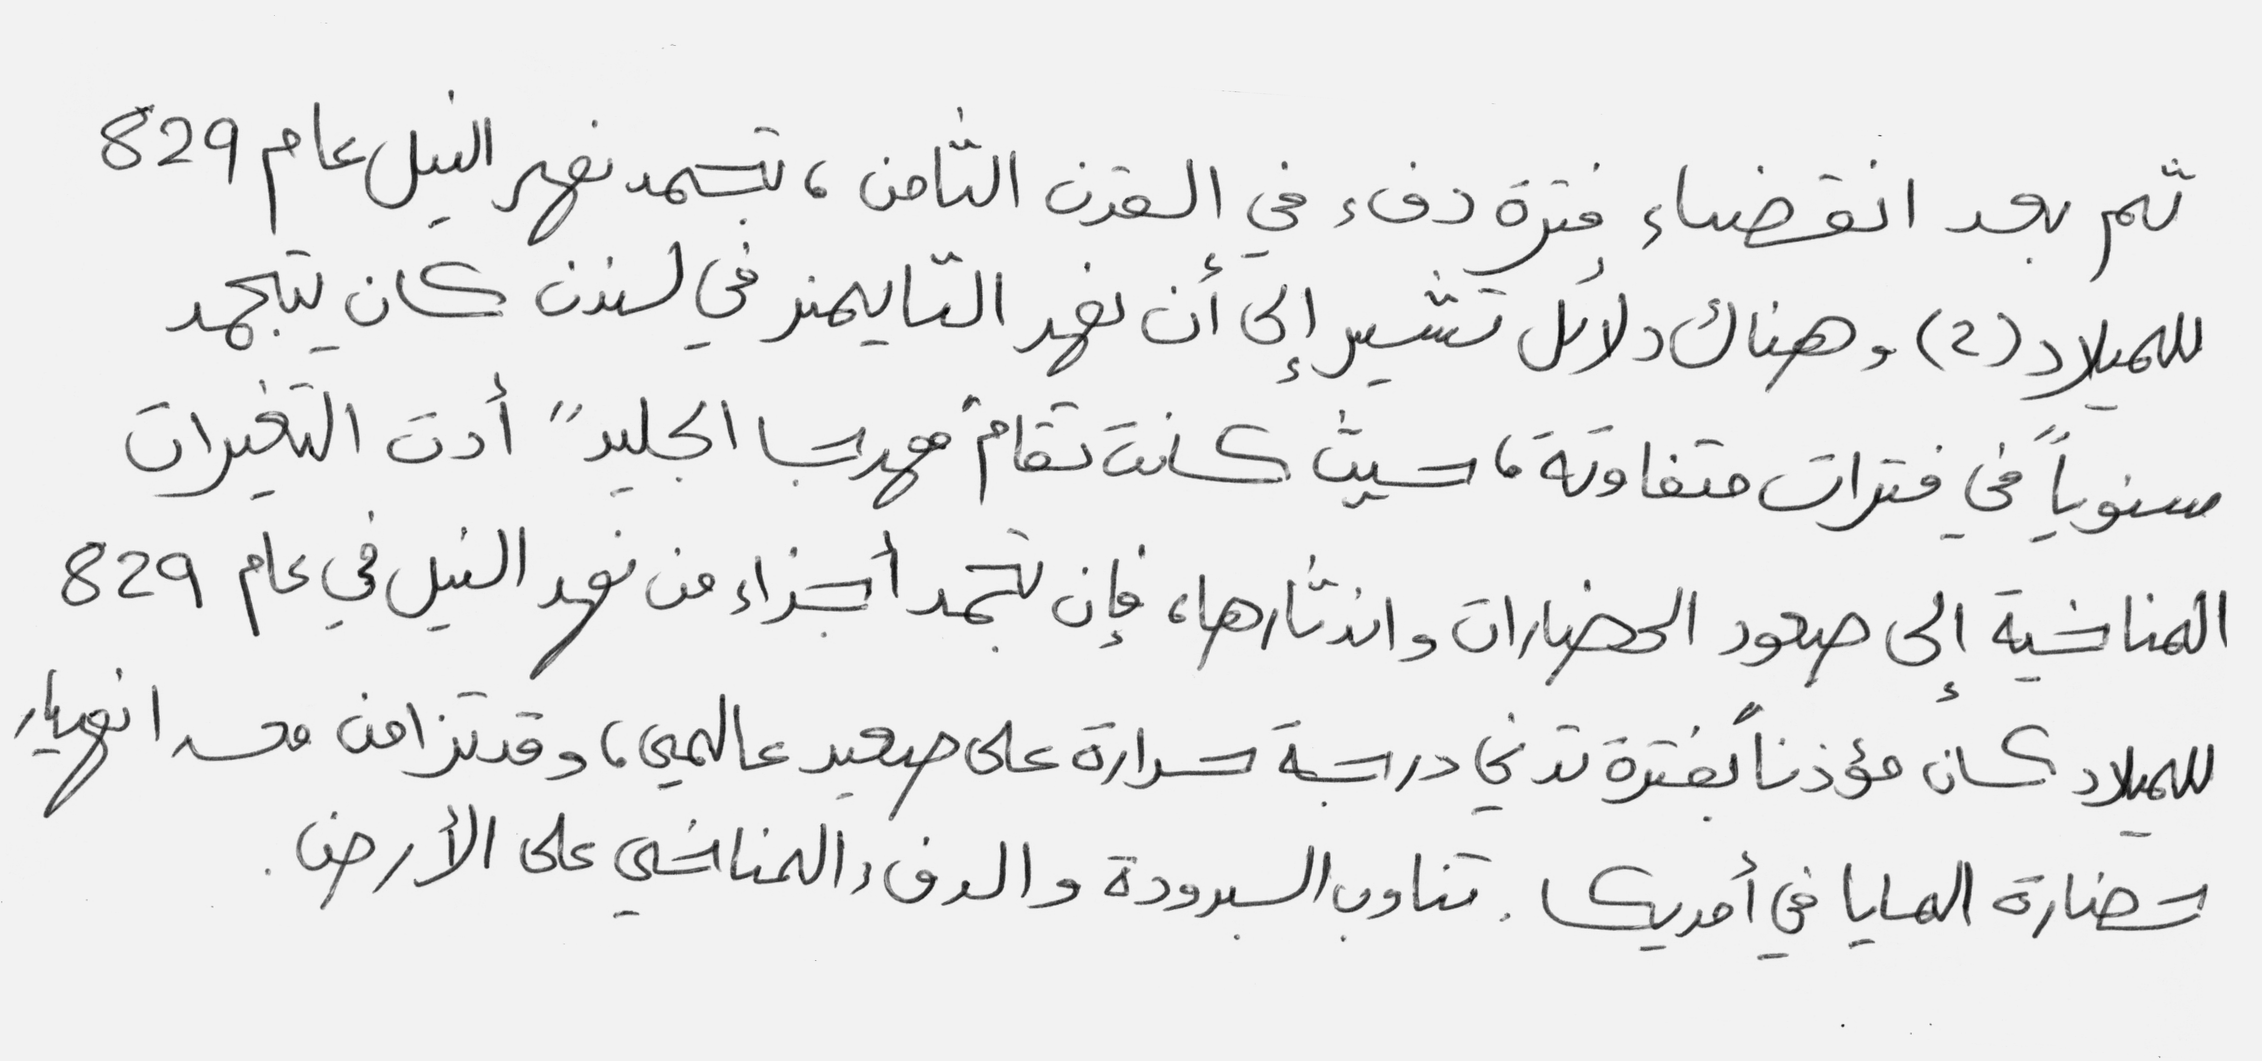 ثم بعد انقضاء فترة دفء في القرن الثامن، تجمد نهر النيل عام 829
للميلاد (2). وهناك دلائل تشير إلى أن نهر التايمز في لندن كان يتجمد
سنوياً في فترات متفاوتة، حيث كانت تقام "مهرجا الجليد" أدت التغيرات
المناخية إلى صعود الحضارات واندثارها، فإن تجمد أجزاء من نهر النيل في عام 829
للميلاد كان مؤذناً بفترة تدني درجة حرارة على صعيد عالمي، وقد تزامن مع انهيار
حضارة المايا في أمريكا. تناوب البرودة والدفء المناخي على الأرض.